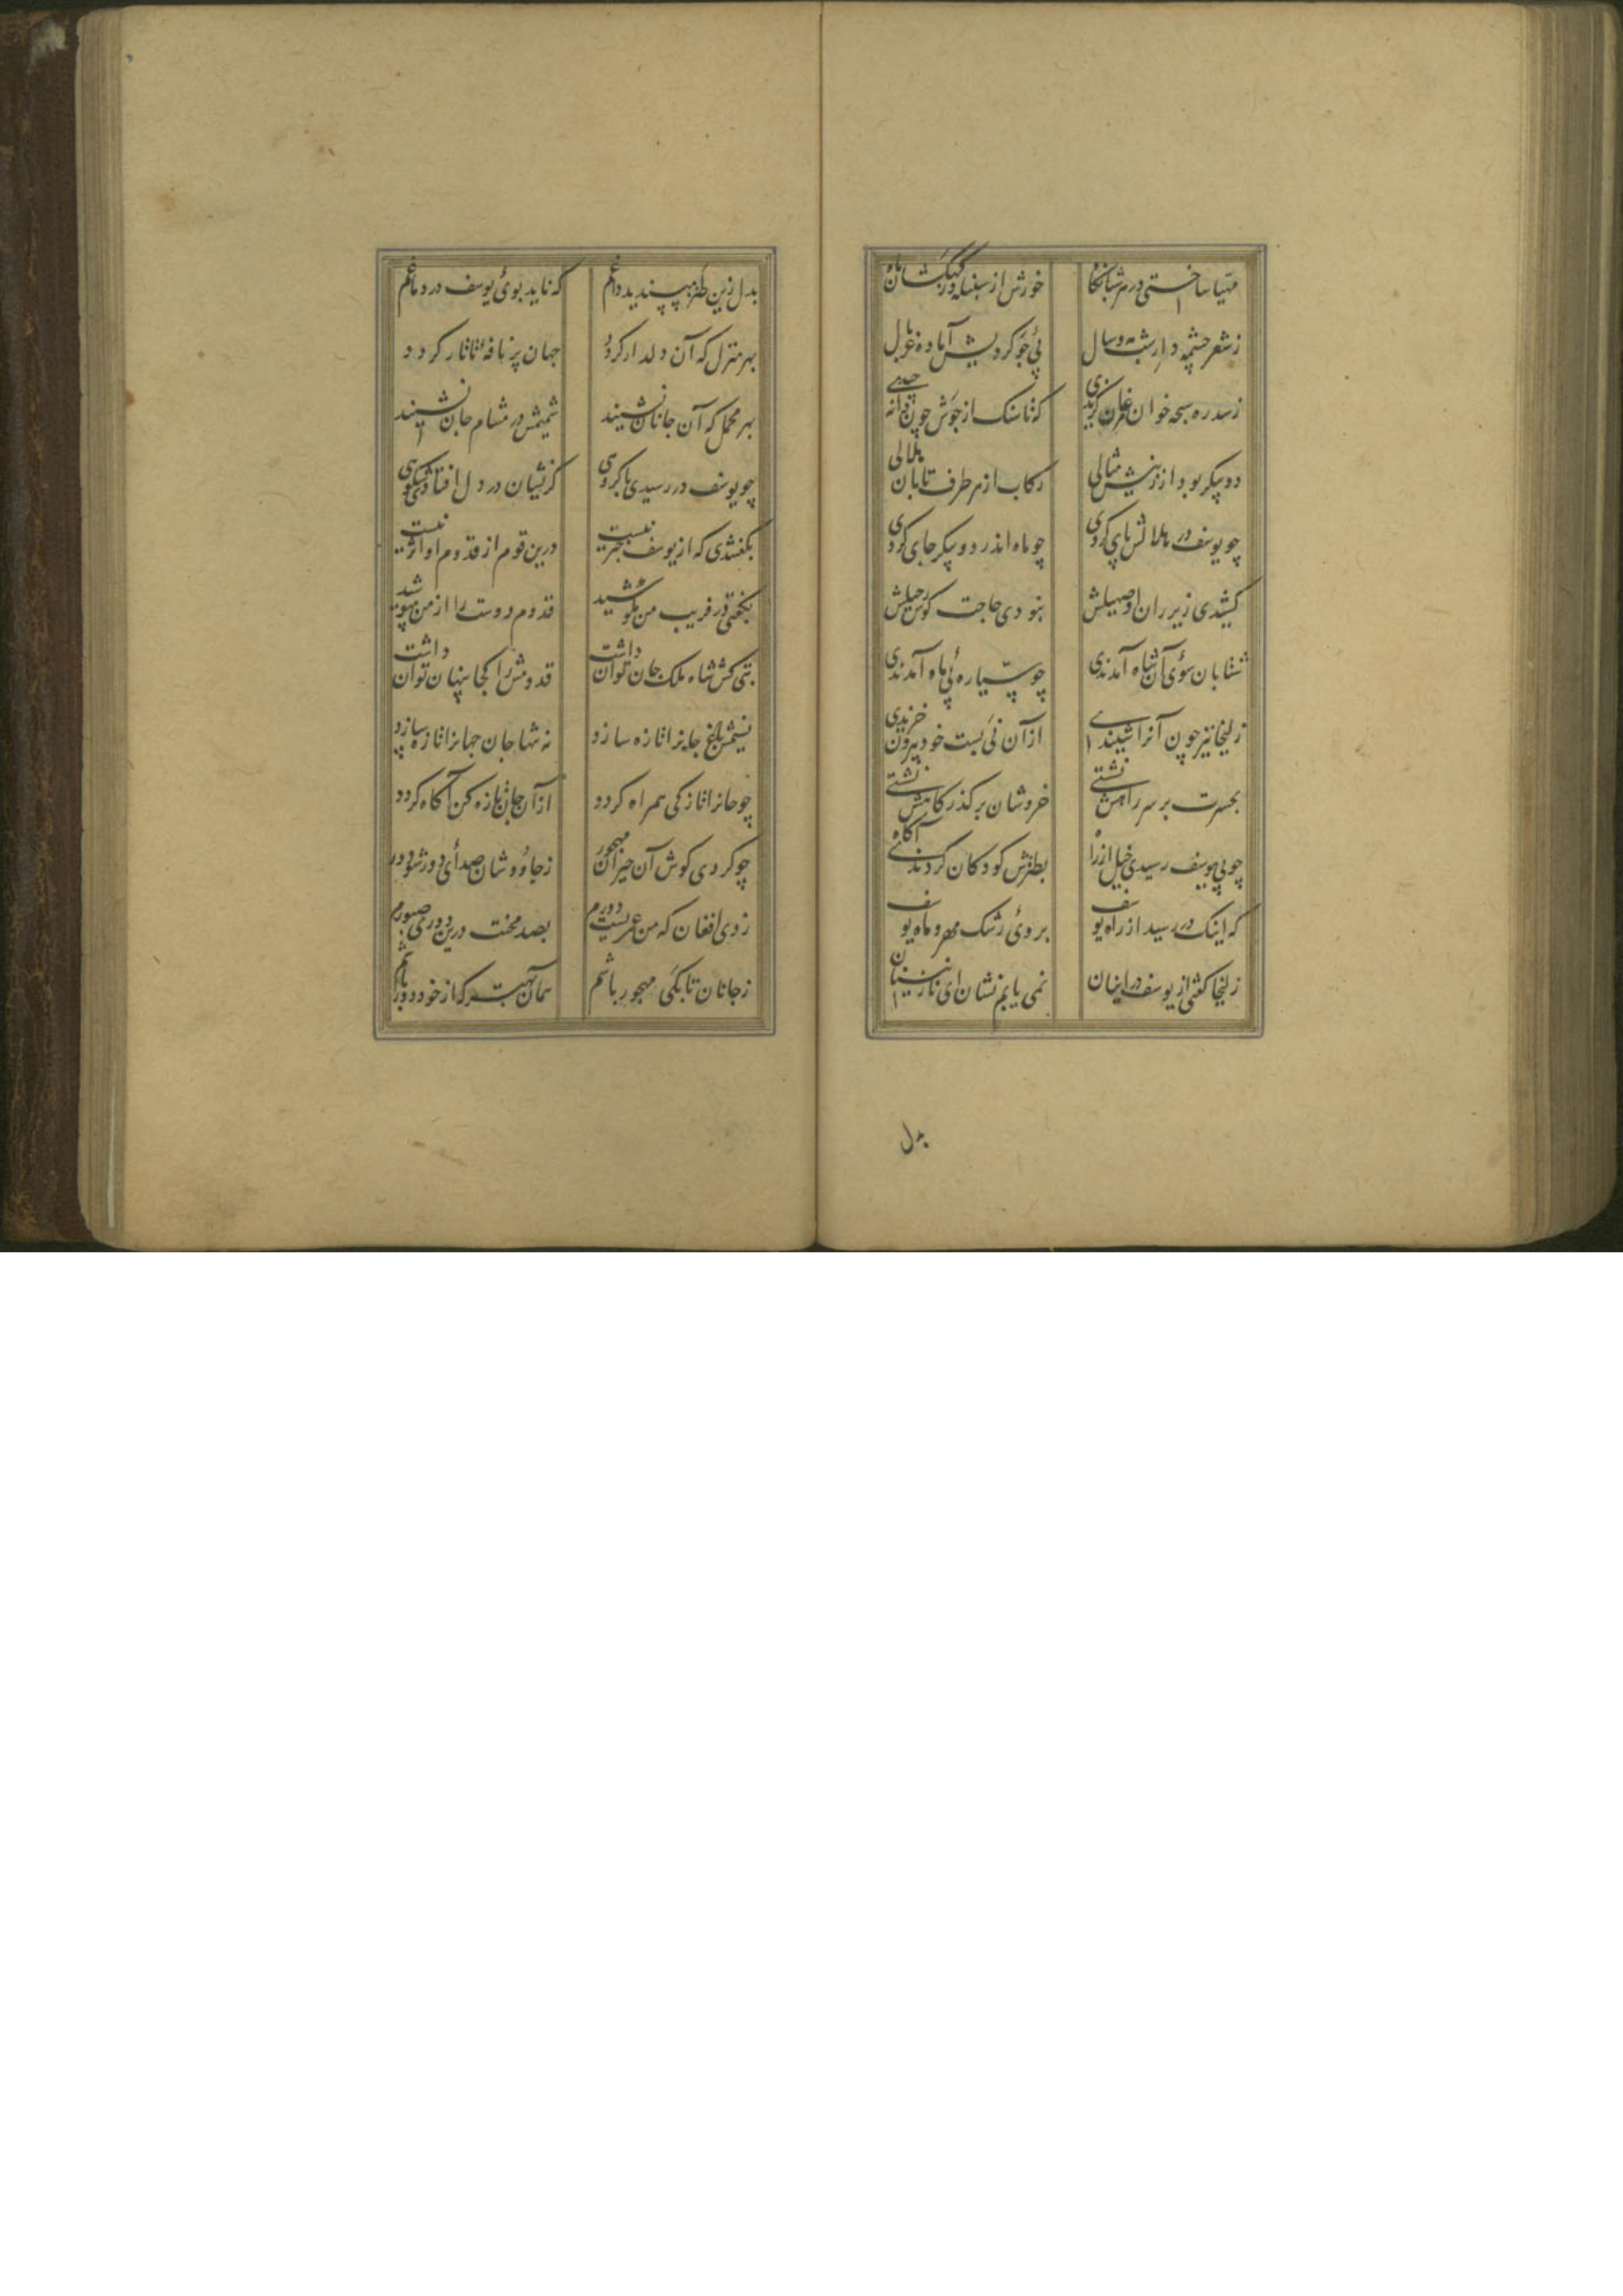 مهیا ساختی در هر شبانگاه خورش از سنبله وز کهکشان کاه
ز شعر چشمه دار شب مه و سال پی جو کردیش آماده غربال
ز سدره سبحه خوان مرغان گزیدی که تا سنگ از جوش چون دانه چیدی
دو پیکر بود از زینش مثالی رکاب از هر طرف تابان هلالی
چو یوسف در هلالش پای کردی چو ماه اندر دو پیکر جای کردی
کشیدی زیر ران او صهیلش نبودی حاجت کوس رحیلش
شتابان سوی آن شاه آمدندی چو سیاره پی ماه آمدندی
زلیخا نیز چون آنرا شنیدی از آن نی بست خود بیرون خزیدی
بحسرت بر سر راهش نشستی خروشان بر گذرگاهش نشستی
چو بی یوسف رسیدی خیل از راه بطنزش کودکان کردندی آگاه
که اینک در رسید از راه یوسف بروی رشک مهر و ماه یوسف
زلیخا گفتی از یوسف در اینان نمی یابم نشان ای نازنینان
بدل
بدل زین طنز مپسندید داغم که ناید بوی یوسف در دماغم
بهر منزل که آن دلدار گردد جهان پر نافهٔ تاتار گردد
بهر محمل که آن جانان نشیند شمیمش در مشام جان نشیند
چو یوسف در رسیدی با گروهی کزیشان در دل افتادی شکوهی
بگفتندی که از یوسف خبر نیست درین قوم از قدوم او اثر نیست
بگفتی در فریب من مکوشید قدوم دوست را از من مپوشید
بتی کش شاه ملک جان توان داشت قدومش را کجا پنهان توان داشت
نسیمش باغ جانرا تازه سازد نه تنها جان جهانرا تازه سازد
چو جانرا تازگی همراه گردد از آن جان تازه کن آگاه گردد
چو کردی گوش آن حیران مهجور ز جاووشان صدای دور شو دور
زدی افغان که من عمریست دورم بصد محنت درین دوری صبورم
ز جانان تا بکی مهجور باشم همان بهتر که از خود دور باشم